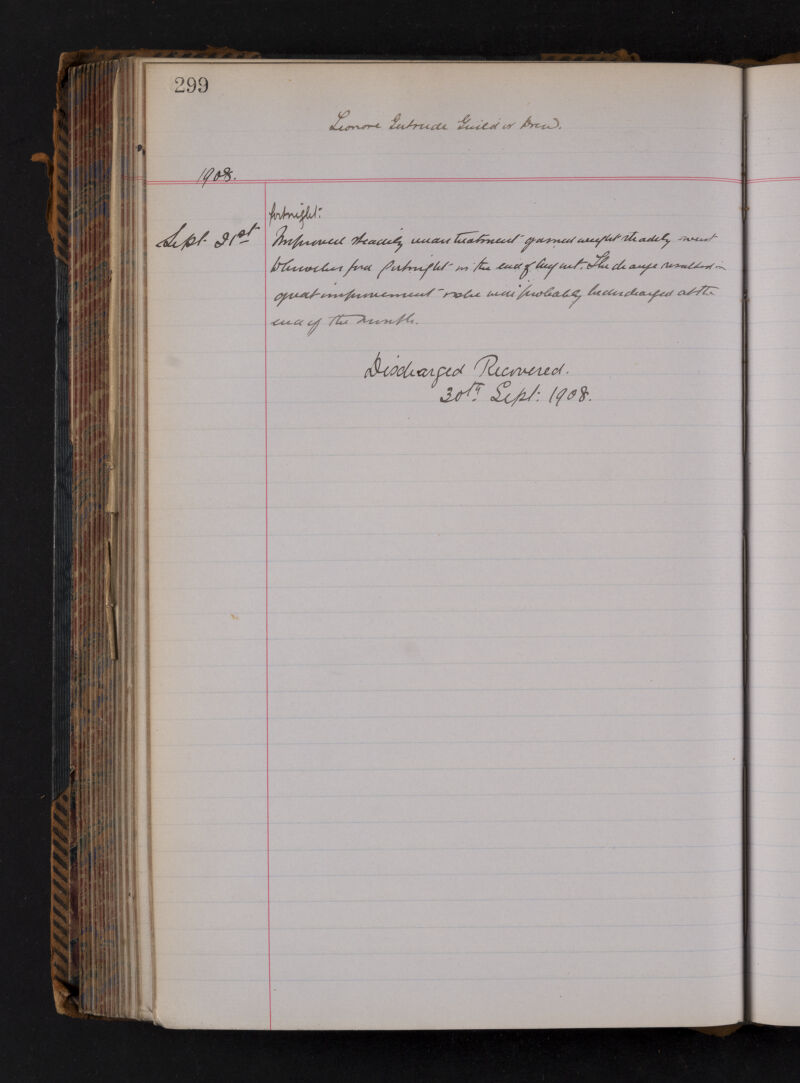 299
Leonore Gertrude Guild or Drew.
1908.
fortnight:
Sept. 21st Improved steadily under treatment gained weight steadily & went
for a fortnight in the end of August. The change resulted in
great improvement & she will probably be discharged at the
end of the month.
Discharged Recovered.
30th Sept: 1908.